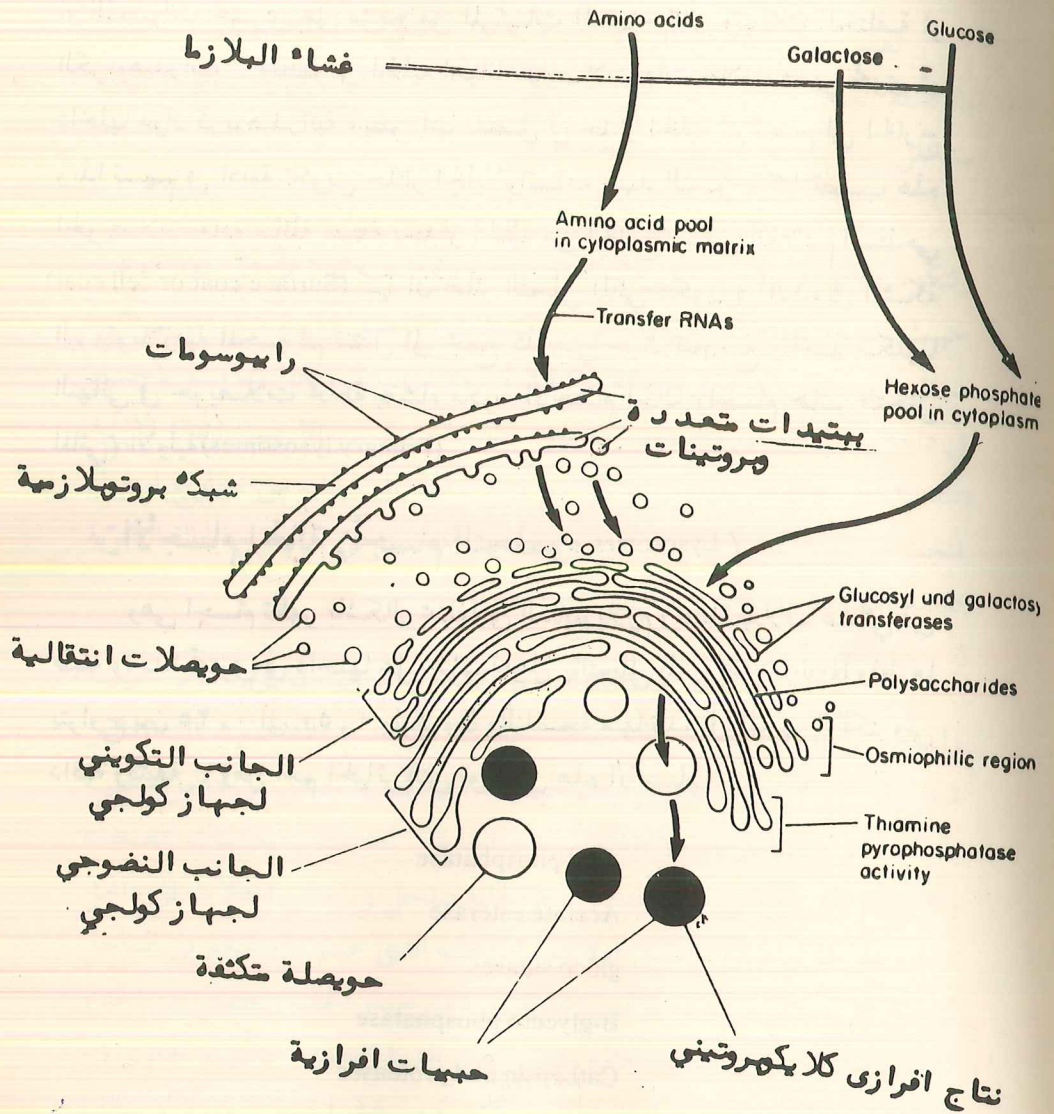 Amino acids
Glucose
Galactose
غشاء البلازما
Amino acid pool
in cytoplasmic matrix
Transfer RNAs
رايبوسومات
Hexose phosphate
pool in cytoplasm
ببتيدات متعددة
وبروتينات
شبكه بروتوبلازمية
Glucosyl und galactosy
transferases
حويصلات انتقالية
Polysaccharides
Osmiophilic region
الجانب التكويني
لجهاز كولجي
Thiamine
pyrophosphatase
activity
الجانب النضوجي
لجهاز كولجي
حويصلة متكثفة
حبيبات افرازية
نتاج افرازى كلايكوبروتيني